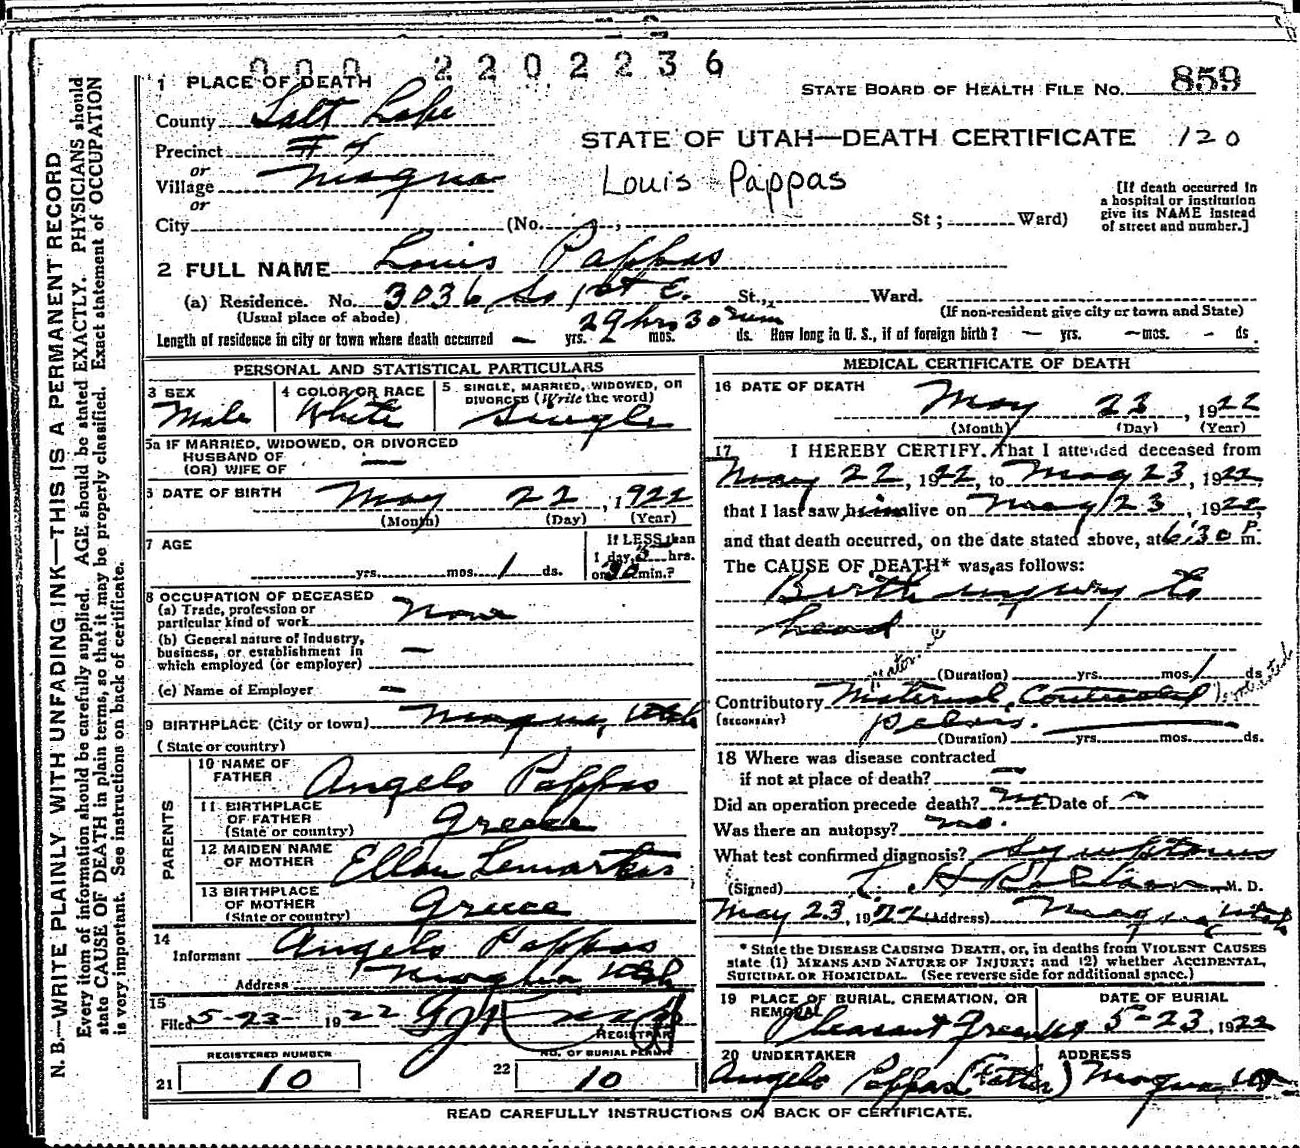 000 2202236
1 PLACE OF DEATH
STATE BOARD OF HEALTH FILE NO. 859
County Salt Lake
STATE OF UTAH—DEATH CERTIFICATE 120
Precinct # 4
or
Village Magna
Louis Pappas
or
[If death occurred in
a hospital or institution
give its NAME instead
of street and number.]
City (No. St; Ward)
2 FULL NAME Louis Pappas
(a) Residence. No. 3036 So 1st E. St., Ward.
(Usual place of abode)
(If non-resident give city or town and State)
29 hrs 30 min
Length of residence in city or town where death occurred — yrs. mos. ds. How long in U. S., if of foreign birth? — yrs. — mos. - ds.
PERSONAL AND STATISTICAL PARTICULARS
3 SEX
Male
4 COLOR OR RACE
White
5 SINGLE, MARRIED, WIDOWED, OR
DIVORCED (Write the word)
Single
5a IF MARRIED, WIDOWED, OR DIVORCED
HUSBAND OF
(OR) WIFE OF —
6 DATE OF BIRTH May 22, 1922
(Month) (Day) (Year)
7 AGE
yrs. mos. 1 ds.
If LESS than
1 day, 5 hrs.
or 30 min.?
8 OCCUPATION OF DECEASED
(a) Trade, profession or
particular kind of work None
(b) General nature of industry,
business, or establishment in
which employed (or employer) —
(c) Name of Employer —
9 BIRTHPLACE (City or town) Magna, Utah
(State or country)
PARENTS
10 NAME OF
FATHER Angelo Pappas
11 BIRTHPLACE
OF FATHER
(State or country) Greece
12 MAIDEN NAME
OF MOTHER Ellan
13 BIRTHPLACE
OF MOTHER
(State or country) Greece
14
Informant Angelo Pappas
Address Magna Utah
15
Filed 5-23- 1922
REGISTRAR
REGISTERED NUMBER
21 10
NO. OF BURIAL PERMIT
22 10
MEDICAL CERTIFICATE OF DEATH
16 DATE OF DEATH
May 23, 1922
(Month) (Day) (Year)
17 I HEREBY CERTIFY. That I attended deceased from
May 22, 1922, to May 23, 1922,
that I last saw him alive on May 23, 1922,
and that death occurred, on the date stated above, at 6:30 P. m.
The CAUSE OF DEATH* was as follows:
Birth injury to
head
(Duration) yrs. mos. 1 ds
Contributory Maternal, Contracted
(SECONDARY) pelvis.
(Duration) yrs. mos. ds.
18 Where was disease contracted
if not at place of death? —
Did an operation precede death? no Date of —
Was there an autopsy? no.
What test confirmed diagnosis? Symptoms
(Signed) M. D.
May 23, 1922 (Address) Magna Utah
* State the DISEASE CAUSING DEATH, or, in deaths from VIOLENT CAUSES
state (1) MEANS AND NATURE OF INJURY; and (2) whether ACCIDENTAL,
SUICIDAL OR HOMICIDAL. (See reverse side for additional space.)
19 PLACE OF BURIAL, CREMATION, OR
REMOVAL
Pleasant Green Ut
DATE OF BURIAL
5-23, 1922
20 UNDERTAKER
Angelo Pappas (Father)
ADDRESS
Magna Ut
READ CAREFULLY INSTRUCTIONS ON BACK OF CERTIFICATE.
N. B.—WRITE PLAINLY WITH UNFADING INK—THIS IS A PERMANENT RECORD
Every item of information should be carefully supplied. AGE should be stated EXACTLY. PHYSICIANS should
state CAUSE OF DEATH in plain terms, so that it may be properly classified. Exact statement of OCCUPATION
is very important. See instructions on back of certificate.